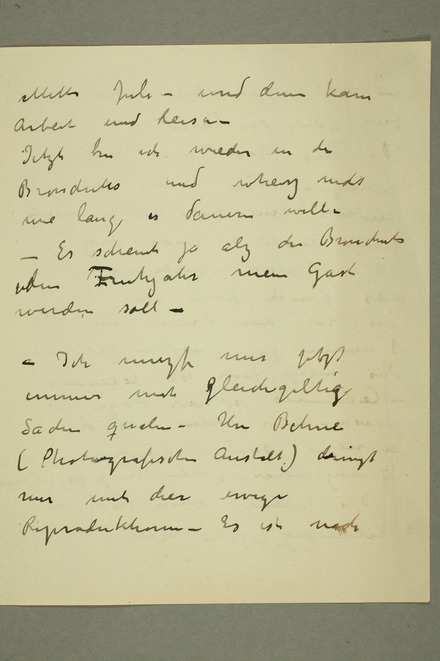 Mitte Juli – und dann kam
Arbeit und Reisen –
Jetzt bin ich wieder in der
Bronchitis und nicht
wie lang es dauern will –
– Es scheint ja als die Bronchitis
jedem Frühjahr mein Gast
werden soll –
– Ich muß nur jetzt
immer mit gleichgiltig
Sachen quälen – Herr Behne
(Photografische Anstalt) drängt
mir mit den ewige
Reproduktionen – Es ist nach